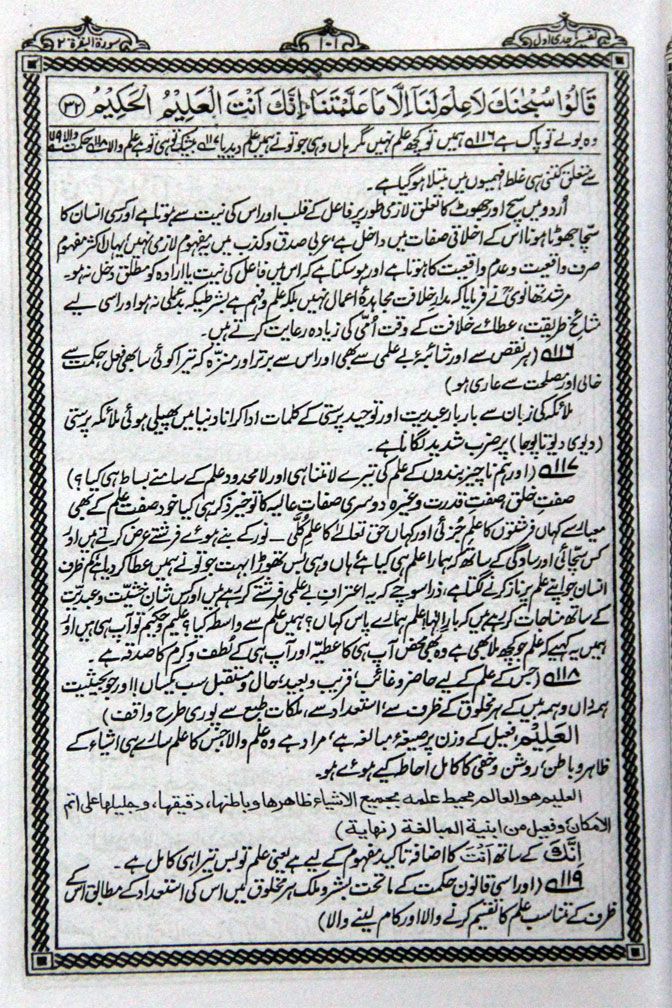 تفسیر ماجدی اول
۱۰۱
سورة البقرة ۲
قَالُوْا سُبْحٰنَكَ لَا عِلْمَ لَنَآ اِلَّا مَا عَلَّمْتَنَا ۚ اِنَّكَ اَنْتَ الْعَلِيْمُ الْحَكِيْمُ ۳۲
وہ بولے تو پاک ہے ۱۱۶ ہمیں تو کچھ علم نہیں مگر ہاں وہی جو تونے ہمیں علم دیدیا ۱۱۷ بیشک تو ہی تو ہے علم والا ۱۱۸ حکمت والا ۱۱۹
سے متعلق کتنی ہی غلط فہمیوں میں مبتلا ہوگیا ہے۔
اُردو میں سچ اور جھوٹ کا تعلق لازمی طور پر فاعل کے قلب اور اس کی نیت سے ہوتا ہے اور کسی انسان کا
سچا جھوٹا ہونا اس کے اخلاقی صفات میں داخل ہے، عربی صدق و کذب میں یہ مفہوم لازمی نہیں، یہاں اکثر مفہوم
صرف واقعیت و عدم واقعیت کا ہوتا ہے اور ہوسکتا ہے کہ اس میں فاعل کی نیت یا ارادہ کو مطلق دخل نہ ہو۔
مرشد تھانویؒ نے فرمایا کہ مدارِ خلافت مجاہدۂ اعمال نہیں بلکہ علم و فہم ہے بشرطیکہ بدعملی نہ ہو اور اسی لیے
مشائخ طریقت، عطائے خلافت کے وقت اُمّی کی زیادہ رعایت کرتے ہیں۔
۱۱۶ (ہر نقص سے اور شائبۂ بے علمی سے بھی اور اس سے برتر اور منزّہ کہ تیرا کوئی سا بھی فعل حکمت سے
خالی اور مصلحت سے عاری ہو)
ملائکہ کی زبان سے بار بار عبدیت اور توحید پرستی کے کلمات ادا کرانا دنیا میں پھیلی ہوئی ملائکہ پرستی
(دیوی دیوتا پوجا) پر ضرب شدید لگانا ہے۔
۱۱۷ (اور ہم ناچیز بندوں کے علم کی تیرے لا متناہی اور لا محدود علم کے سامنے بساط ہی کیا؟)
صفتِ خلق، صفتِ قدرت وغیرہ دوسری صفاتِ عالیہ کا تو خیر ذکر ہی کیا خود صفتِ علم کے بھی
معیار سے کہاں فرشتوں کا علم جزئی اور کہاں حق تعالےٰ کا علم کُلّی ــ نور کے بنے ہوئے فرشتے عرض کرتے ہیں اور
کس سچائی اور سادگی کے ساتھ کہ ہمارا علم ہی کیا ہے ہاں وہی بس تھوڑا بہت جو تونے ہمیں عطا کر دیا ہے کم ظرف
انسان جو اپنے علم پر ناز کرنے لگتا ہے، ذرا سوچے کہ یہ اعترافِ بے علمی فرشتے کر رہے ہیں اور کس شانِ خشیّت و عبدیت
کے ساتھ مناجات کر رہے ہیں کہ بار الٰہا علم ہمارے پاس کہاں؟ ہمیں علم سے واسطہ کیا؟ علیم و حکیم تو آپ ہی ہیں اور
ہمیں یہ کہیے کہ علم جو کچھ ملا بھی ہے وہ بھی محض آپ ہی کا عطیّہ اور آپ ہی کے لُطف و کرم کا صدقہ ہے۔
۱۱۸ (جس کے علم کے لیے حاضر و غائب، قریب و بعید، حال و مستقبل سب یکساں! اور جو بحیثیت
ہمہ داں و ہمہ بیں کے ہر مخلوق کے ظرف سے، استعداد سے، ملکات طبع سے پوری طرح واقف)
الْعَلِيْمُ، فعیل کے وزن پر صیغۂ مبالغہ ہے، مراد ہے وہ علم والا جس کا علم سارے ہی اشیاء کے
ظاہر و باطن، روشن و خفی کا کامل احاطہ کیے ہوئے ہو۔
العليم هو العالم محيط علمه بجميع الاشياء ظاهرها وباطنها، دقيقها، وجليلها على اتم
الامكان وفعيل من ابنية المبالغة (نهاية)
اِنَّكَ کے ساتھ اَنْتَ کا اضافہ تاکید مفہوم کے لیے ہے یعنی علم تو بس تیرا ہی کامل ہے۔
۱۱۹ (اور اسی قانون حکمت کے ماتحت بشر و ملک ہر مخلوق میں اس کی استعداد کے مطابق اس کے
ظرف کے متناسب علم کا تقسیم کرنے والا اور کام لینے والا)